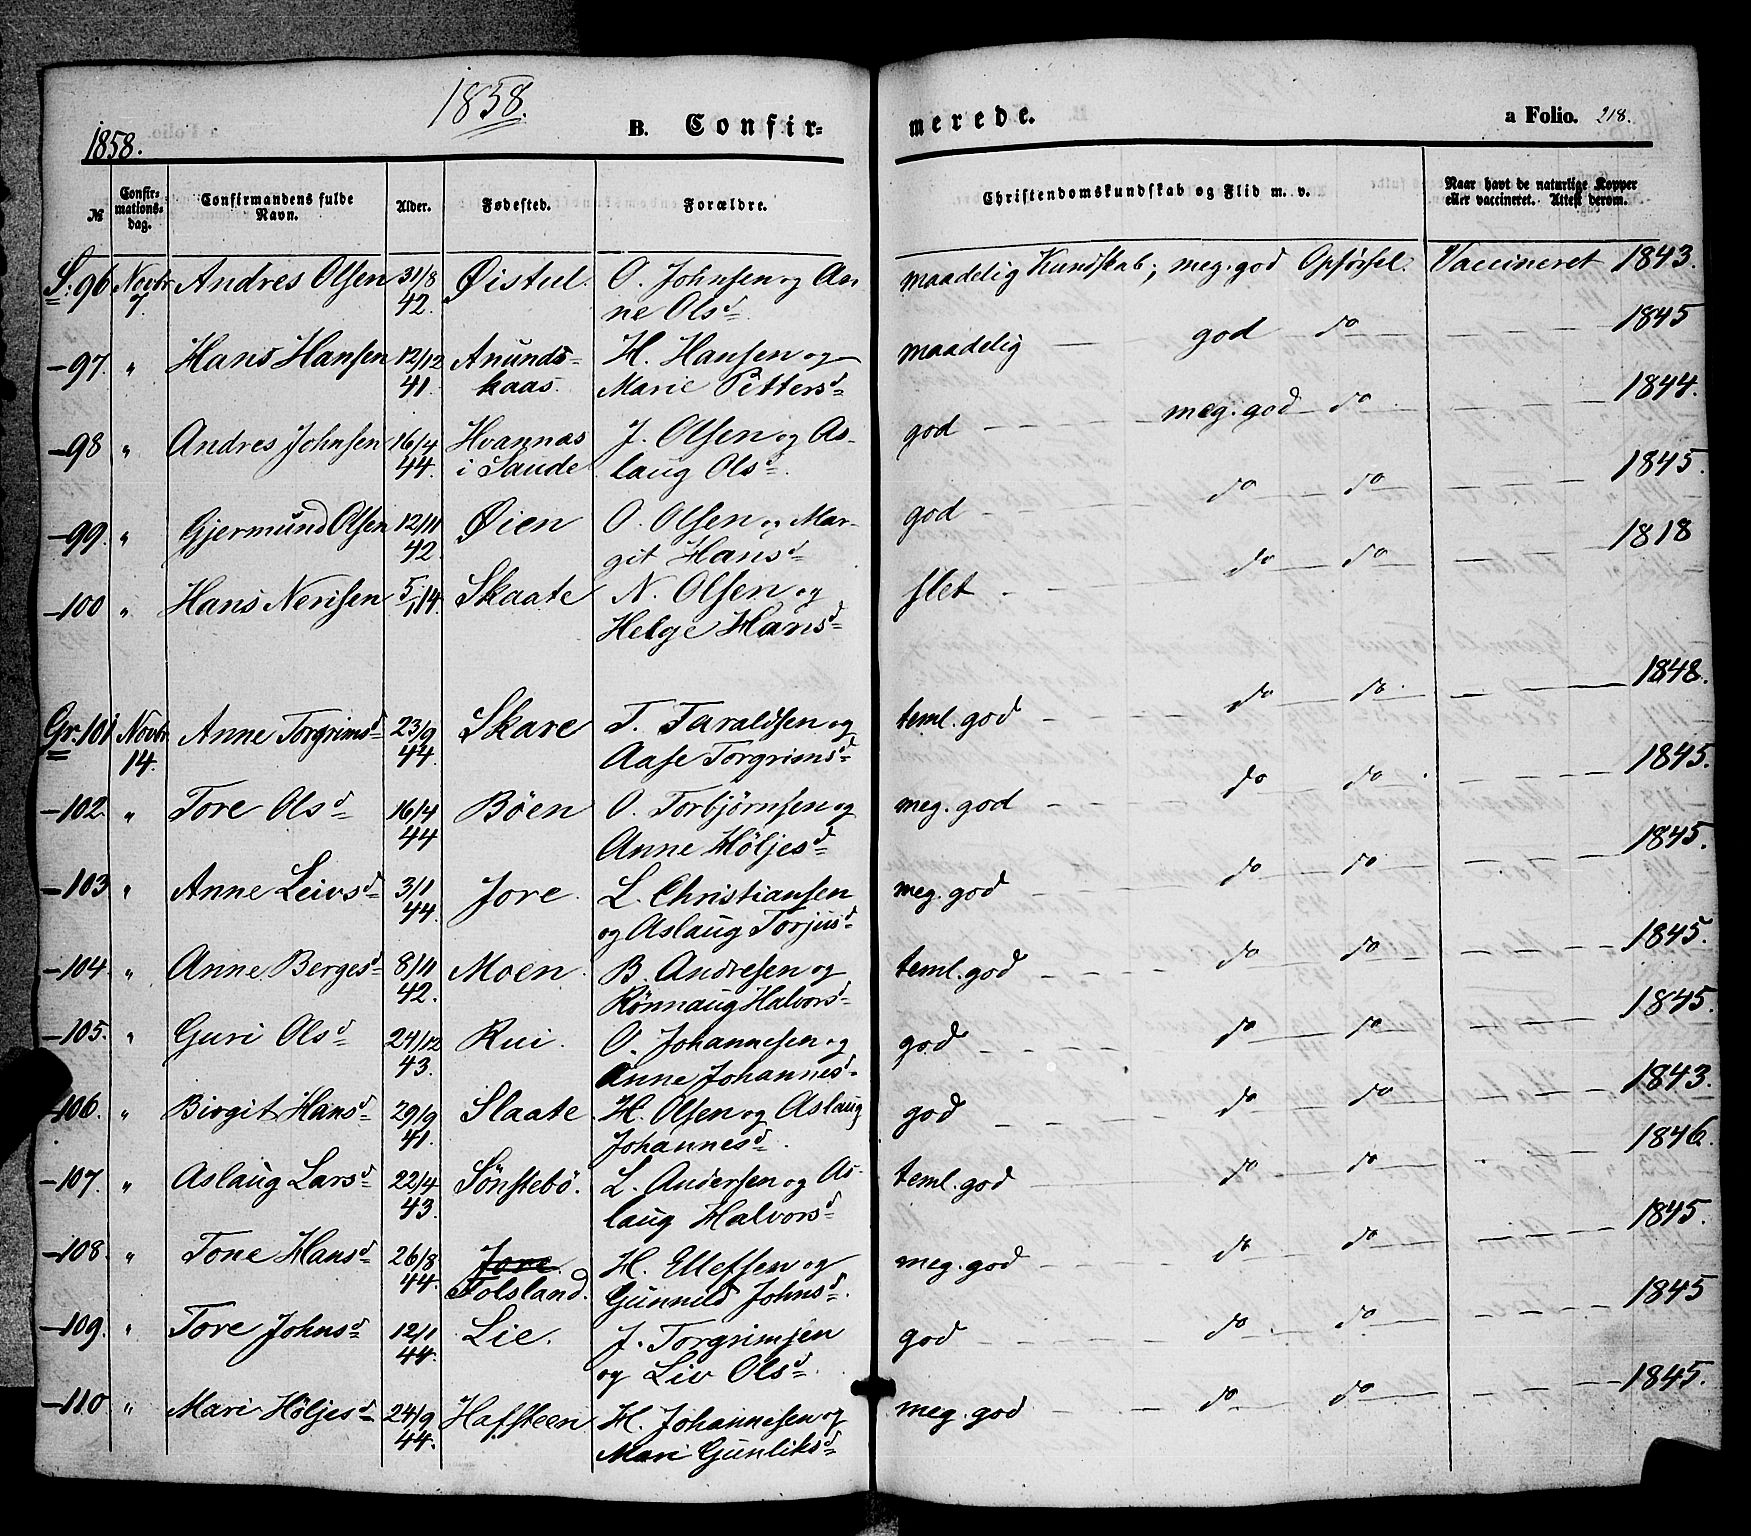 1858.
1858.
B. Confir=
merede.
a Folio. 218.
№
Confir=
mations=
dag.
Confirmandens fulde
Navn.
Alder.
Fødested.
Forældre.
Christendomskundskab og Flid m. v.
Naar havt de naturlige Kopper
eller vaccineret. Attest derom.
S. 96 Novbr Andres Olsen 31/8 Øistul. O. Johnsen og An maadelig Kundskab; meg. god Opførsel. Vaccineret 1843.
7. 42. ne Olsd
-97. " Hans Hansen 12/12 Anunds- H. Hansen og maadelig — god — do — — — 1845
41. kaas. Marie Pettersd
-98 " Andres Johnsen 16/4 Hvannas J. Olsen og As- god - - - - meg. god — do - — — — 1844.
44. i Saude laug Olsd.
-99. " Gjermund Olsen 12/11 Øien O. Olsen og Mar- god - - - do — do — — — 1845.
42. git Hansd
-100 " Hans Nerisen 5/1 14. Skaate N. Olsen og slet - — do — do — — — 1818
Helge Hansd
Gr. 101 Novbr Anne Torgrimsd 23/9 Skare T. Taraldsen og teml. god - - - do — do — — — 1848.
14. 44. Aase Torgrimsd
-102. " Tore Olsd 16/4 Böen O. Torbjørnsen og meg. god - - - do do - - - 1845.
44 Anne Höljesd
-103 " Anne Leivsd 3/1 Jore. L. Christiansen meg. god - - - do — do — - - 1845.
44. og Aslaug Torjusd
-104. " Anne Bergesd 8/11 Moen. B. Andresen og teml. god - - - do - do — - - 1845.
42. Rönnaug Halvorsd
-105. " Guri Olsd 24/12 Rui. O. Johannesen og god - - - do — do — - - 1845.
43. Anne Johannesd
-106. " Birgit Hansd 29/9 Slaate H. Olsen og Aslaug god - - - do — do — - - 1843.
41. Johannesd.
-107. " Aslaug Larsd 22/4 Sönstebö. L. Andersen og As- teml. god - - - do — do — - - 1846.
43. laug Halvorsd
-108. " Tone Hansd 26/8 Jore. H. Ellefsen og meg. god - - - do — do — - - 1845.
44. Folsland. Gunnild Johnsd.
-109. " Tore Johnsd 12/1 Lie. J. Torgrimsen god - - - do — do — - - 1845
44. og Liv Olsd.
-110 " Mari Höljesd 24/9 Hafsteen H. Johannesen og meg. god - - - do — do — - - 1845.
44. Mari Gunliksd